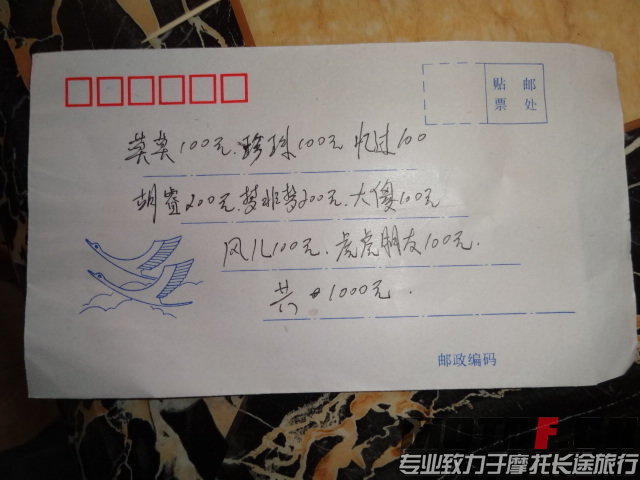 贴 邮
票 处
莫莫100元、珍珠100元 忆过100
胡睿200元、梦非梦200元、大傻100元
风儿100元、虎虎朋友100元.
共 1000元.
邮政编码
专业致力于摩托长途旅行